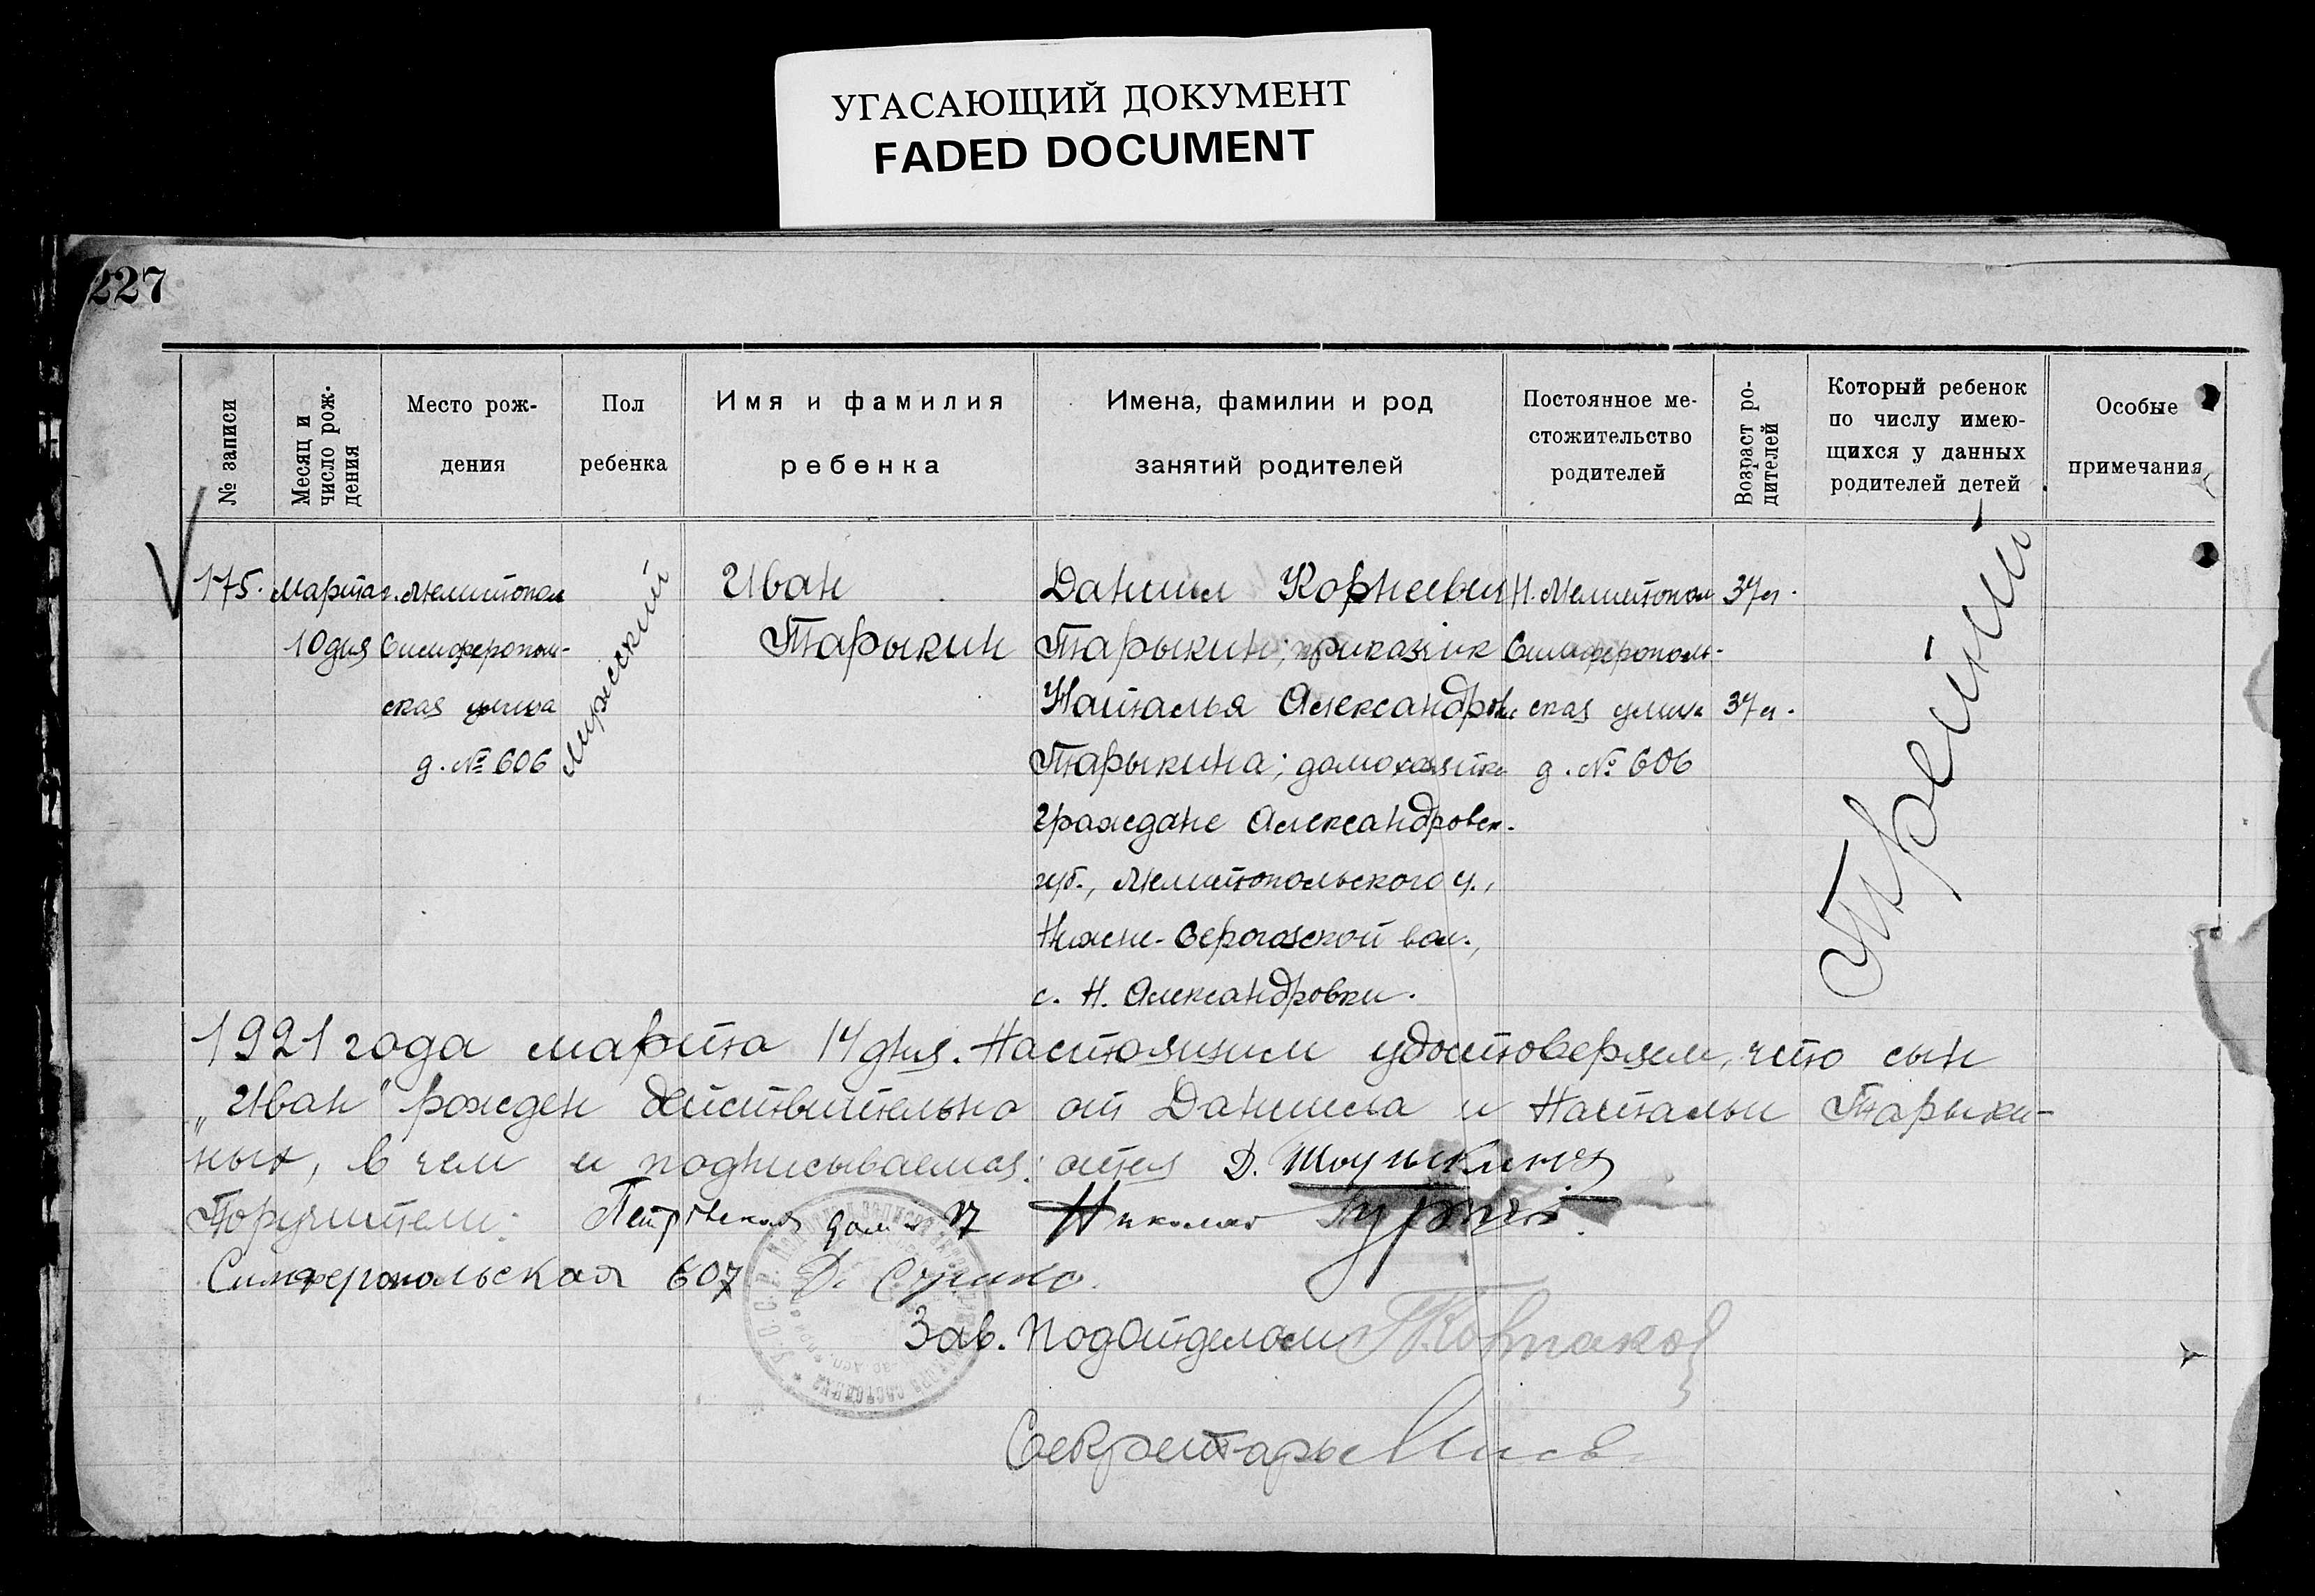 УГАСАЮЩИЙ ДОКУМЕНТ
FADED DOCUMENT
227
№ записи
Месяц и число рож-
дения
Место рож-
дения
Пол
ребенка
Имя и фамилия
ребенка
Имена, фамилии и род
занятий родителей
Постоянное ме-
стожительство
родителей
Возраст ро-
дителей
Который ребенок
по числу имею-
щихся у данных
родителей детей
Особые
примечания
175.
марта
10 дня
г. Мелитополь
Симферополь-
ская улица
д. № 606
Мужской
Иван
Тарыкин
Даниил Корнеевич
Тарыкин; приказчик
Наталья Александров
Тарыкина; домохозяйка
Граждане Александровск.
губ., Мелитопольского у.,
Нижне-Серогозской вол.,
с. Н. Александровки.
Мелитополь
Симферополь-
ская улица
д. № 606
37 л.
37 л.
Третий
1921 года марта 14 дня. Настоящим удостоверяем, что сын
„Иван" рожден действительно от Даниила и Натальи Тарыки-
ных, в чем и подписываемся: отец Д.
Поручители: Петровская дом 17 Николай
Симферопольская 607 Д.
Зав. Подотделом
Секретарь